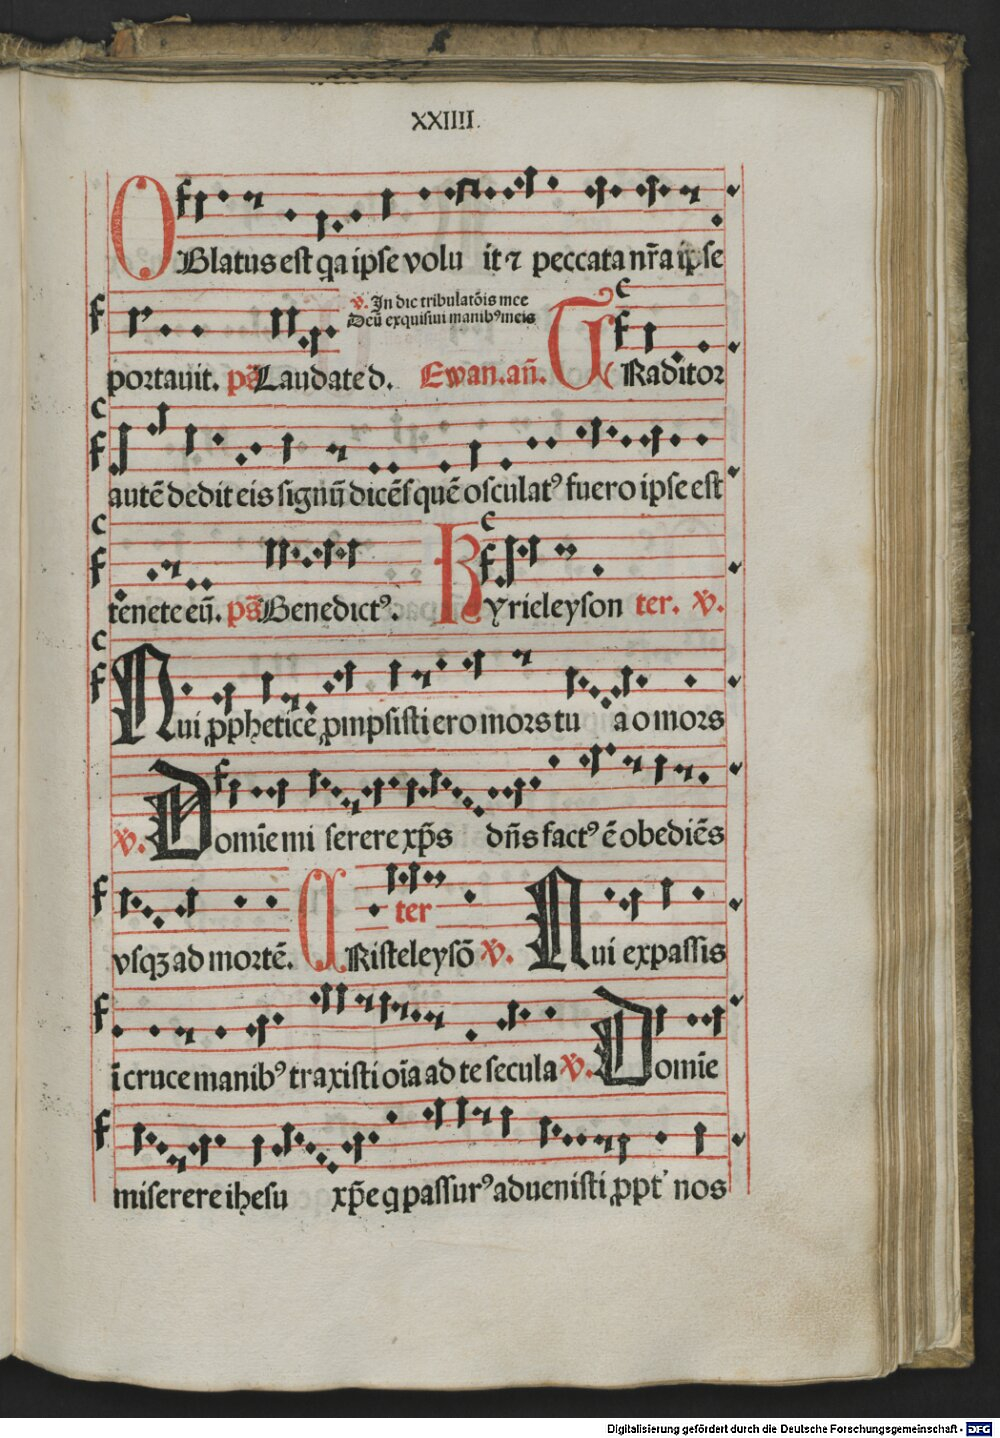 XXIIII.
OBlatus est qa ipse volu it ⁊ peccata nr̃a ipse
℣. In die tribulatõis mee
Deũ exquisiui manibꝰ meis
portauit. ps̃ Laudate d. Ewan. añ. TRaditor
autẽ dedit eis signũ dicẽs quẽ osculatꝰ fuero ipse est
tenete eũ. ps̃ Benedictꝰ. Kyrieleyson ter. ℣.
Qui ꝓphetice ꝓmpsisti ero mors tu a o mors
℣. Domĩe mi serere xp̃s dñs factꝰ ẽ obediẽs
vsqꝫ ad mortẽ. CRisteleysõ ter ℣. Qui expassis
ĩ cruce manibꝰ traxisti oĩa ad te secula ℣. Domĩe
miserere ihesu xp̃e q passurꝰ aduenisti ꝓpt' nos
Digitalisierung gefördert durch die Deutsche Forschungsgemeinschaft - DFG